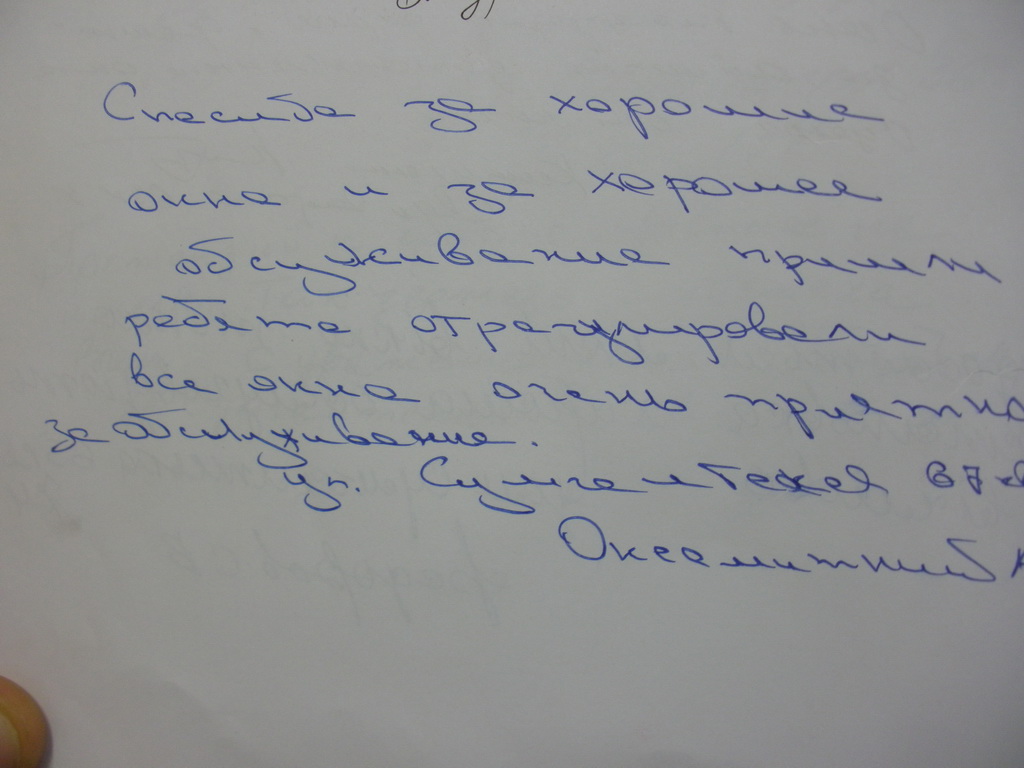 Спасибо за хорошие
окна и за хорошее
обслуживание пришли
ребята отрегулировали
все окна очень приятно
за обслуживание.
ул. Сумгаитская 67
Оксамитний